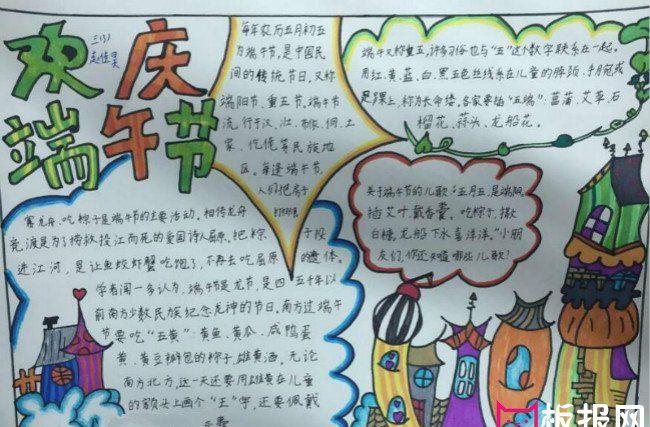 欢庆
端午节
三(3)
每年农历五月初五
为端午节,是中国民
间的传统节日,又称
端阳节、重五节。端午节
流行于汉、壮、布依、侗、土
家、仡佬等民族地
区。每逢端午节,
人们把房子
打扫得
端午又称重五,许多习俗也与“五”这个数字联系在一起。
用红、黄、蓝、白、黑五色丝线系在儿童的脖颈、手腕或
是踝上,称为长命缕。各家要插“五端”:菖蒲、艾草、石
榴花、蒜头、龙船花。
关于端午节的儿歌“五月五,是端阳。
插艾叶,戴香囊。吃粽子,撒
白糖,龙船下水喜洋洋。”小朋
友们,你还知道哪些儿歌?
赛龙舟、吃粽子是端午节的主要活动。相传龙舟
竞渡是为了捞救投江而死的爱国诗人屈原。把粽子投
进江河,是让鱼蛟虾蟹吃饱了,不再去吃屈原的遗体。
学者闻一多认为,端午节是龙节,是四五千年以
前南方少数民族纪念龙神的节日。南方过端午
节要吃“五黄”:黄鱼、黄瓜、咸鸭蛋
黄、黄豆瓣包的粽子、雄黄酒。无论
南方北方,这一天还要用雄黄在儿童
的额头上画个“王”字,还要佩戴
香囊
板报网